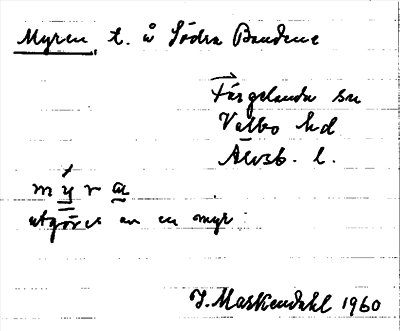 Myren, t. å Södra Bandene
Färgelanda sn
Valbo hd
Älvsb. l.
m y r a
utgöres av en myr
J. Maskendahl 1960